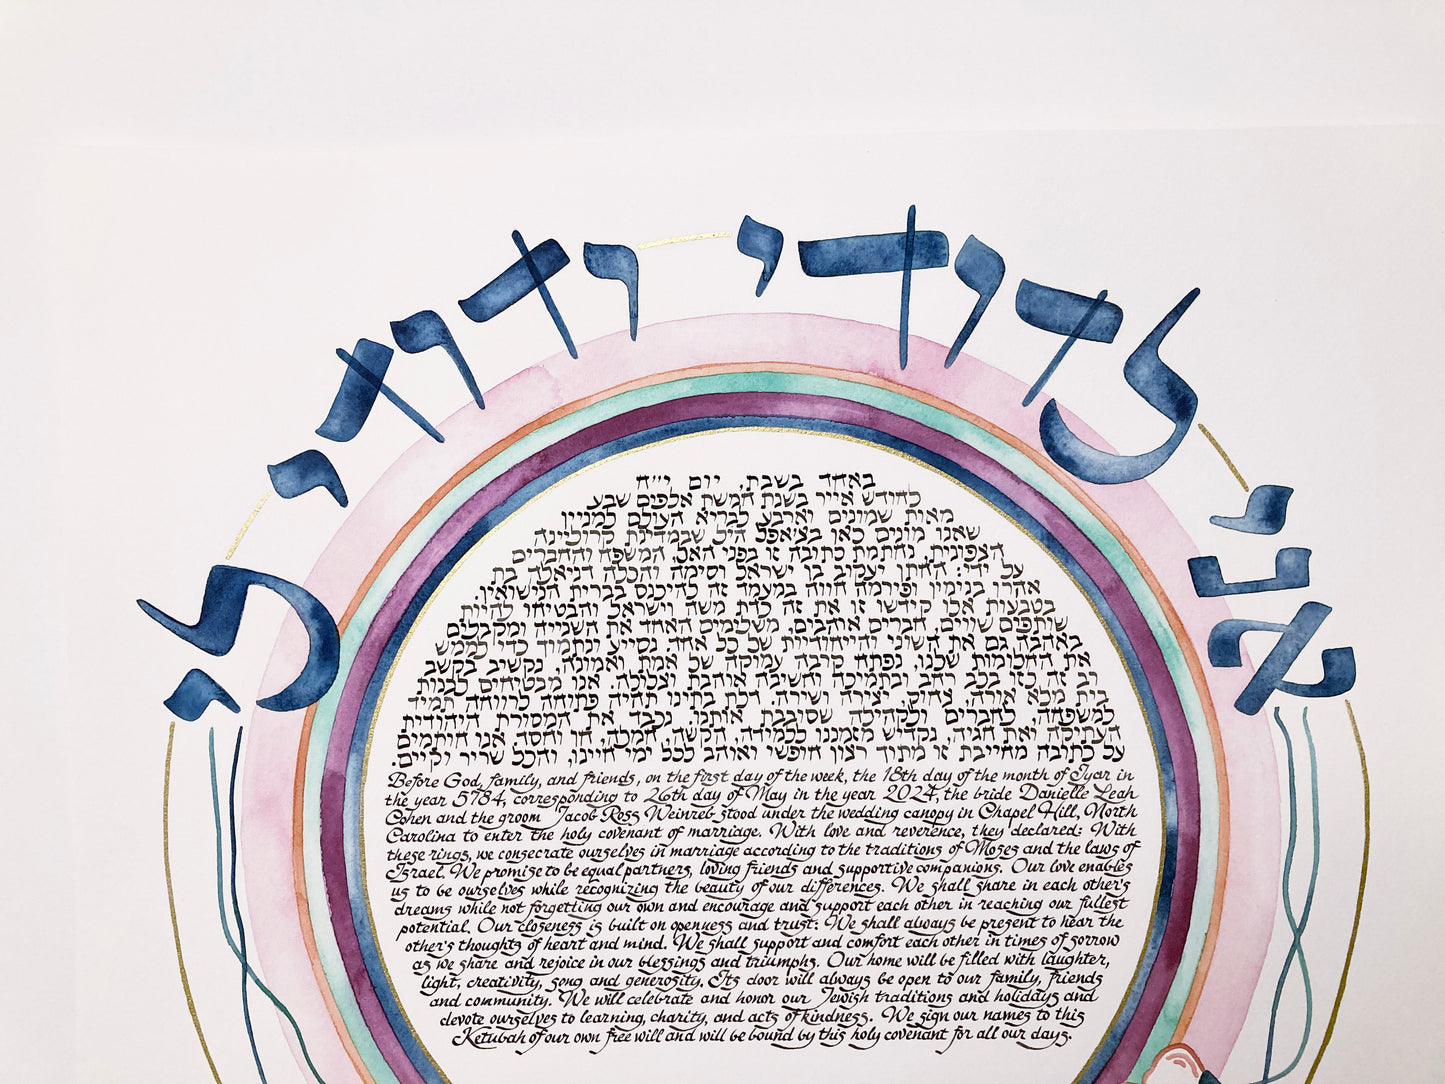 אני לדודי ודודי לי
באחד בשבת, יום י״ח
לחודש אייר בשנת חמשת אלפים שבע
מאות שמונים וארבע לבריא העולם למניין
שאנו מונים כאן בצ׳אפל היל שבמדינת קרוליינה
הצפונית, נחתמת כתובה זו בפני האל, המשפחה והחברים
על ידי: החתן יעקוב בן ישראל וסימה והכלה דניאלה בת
אהרן בנימין ופירמה חווה במעמד זה להיכנס בברית הנישואין.
בטבעות אלו קידשו זו את זה כדת משה וישראל והבטיחו להיות
שותפים שווים, חברים אוהבים, משלימים האחד את השנייה ומקבלים
באהבה גם את השוני והייחודיות של כל אחד. נסייע ונתמיד כדי לממש
את החלומות שלנו. נפתח קירבה עמוקה של אמת ואמונה, נקשיב בקשב
רב זה לזו בלב רחב ובתמיכה וחשיבה אוהבת וצלולה. אנו מבטיחים לבנות
בית מלא אורה, צחוק, יצירה ושירה. דלת ביתינו תהיה פתוחה לרווחה תמיד
למשפחה, לחברים ולקהילה שסובבת אותנו. נכבד את המסורת היהודית
העתיקה ואת חגיה, נקדיש מזמננו ללמידה, הקשה, חמלה, חן וחסד. אנו חותמים
על כתובה מחייבת זו מתוך רצון חופשי ואוהב לכל ימי חיינו, והכל שריר וקיים.
Before God, family, and friends, on the first day of the week, the 18th day of the month of Iyar in
the year 5784, corresponding to 26th day of May in the year 2024, the bride Danielle Leah
Cohen and the groom Jacob Ross Weinreb stood under the wedding canopy in Chapel Hill, North
Carolina to enter the holy covenant of marriage. With love and reverence, they declared: With
these rings, we consecrate ourselves in marriage according to the traditions of Moses and the laws of
Israel. We promise to be equal partners, loving friends and supportive companions. Our love enables
us to be ourselves while recognizing the beauty of our differences. We shall share in each other's
dreams while not forgetting our own and encourage and support each other in reaching our fullest
potential. Our closeness is built on openness and trust: We shall always be present to hear the
other's thoughts of heart and mind. We shall support and comfort each other in times of sorrow
as we share and rejoice in our blessings and triumphs. Our home will be filled with laughter,
light, creativity, song and generosity. Its door will always be open to our family, friends
and community. We will celebrate and honor our Jewish traditions and holidays and
devote ourselves to learning, charity, and acts of kindness. We sign our names to this
Ketubah of our own free will and will be bound by this holy covenant for all our days.